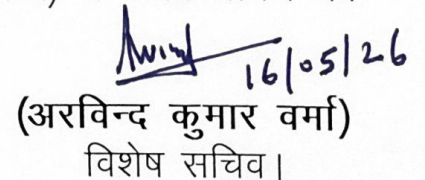 16/05/26
(अरविन्द कुमार वर्मा)
विशेष सचिव।